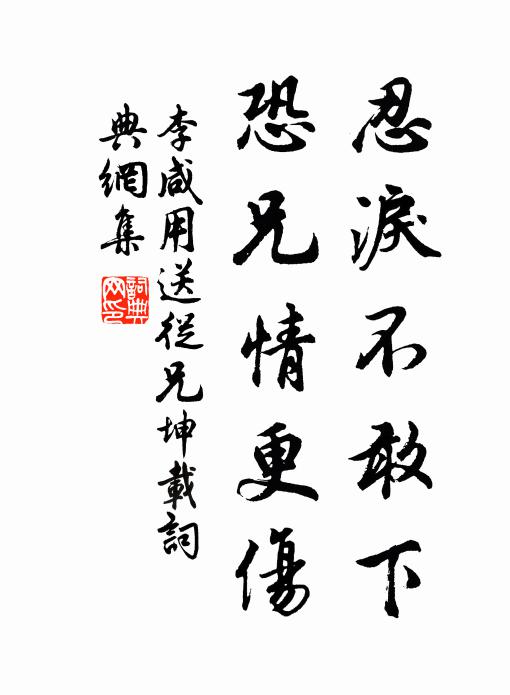 忍淚不敢下
恐兄情更傷
李咸用送從兄坤載詞
典網集
詞典
网印